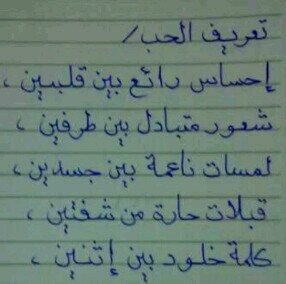 تعريف الحب /
إحساس رائع بين قلبين ،
شعور متبادل بين طرفين ،
لمسات ناعمة بين جسدين ،
قبلات حارة من شفتين ،
كلمة خلود بين إثنين ،